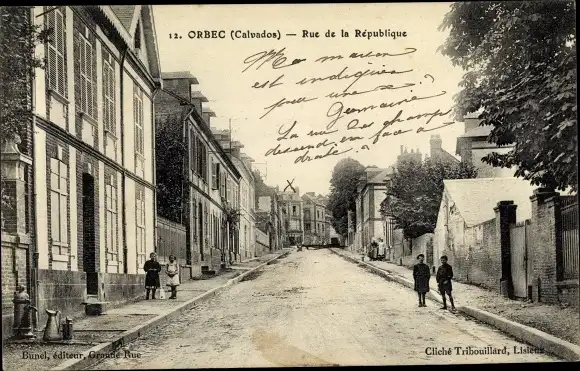 12. ORBEC (Calvados) — Rue de la République
Ma maison
est indiquée
pour une
Germaine
La rue des champs
descend en face à
droite
Bunel, éditeur, Grande Rue
Cliché Tribouillard, Lisieux